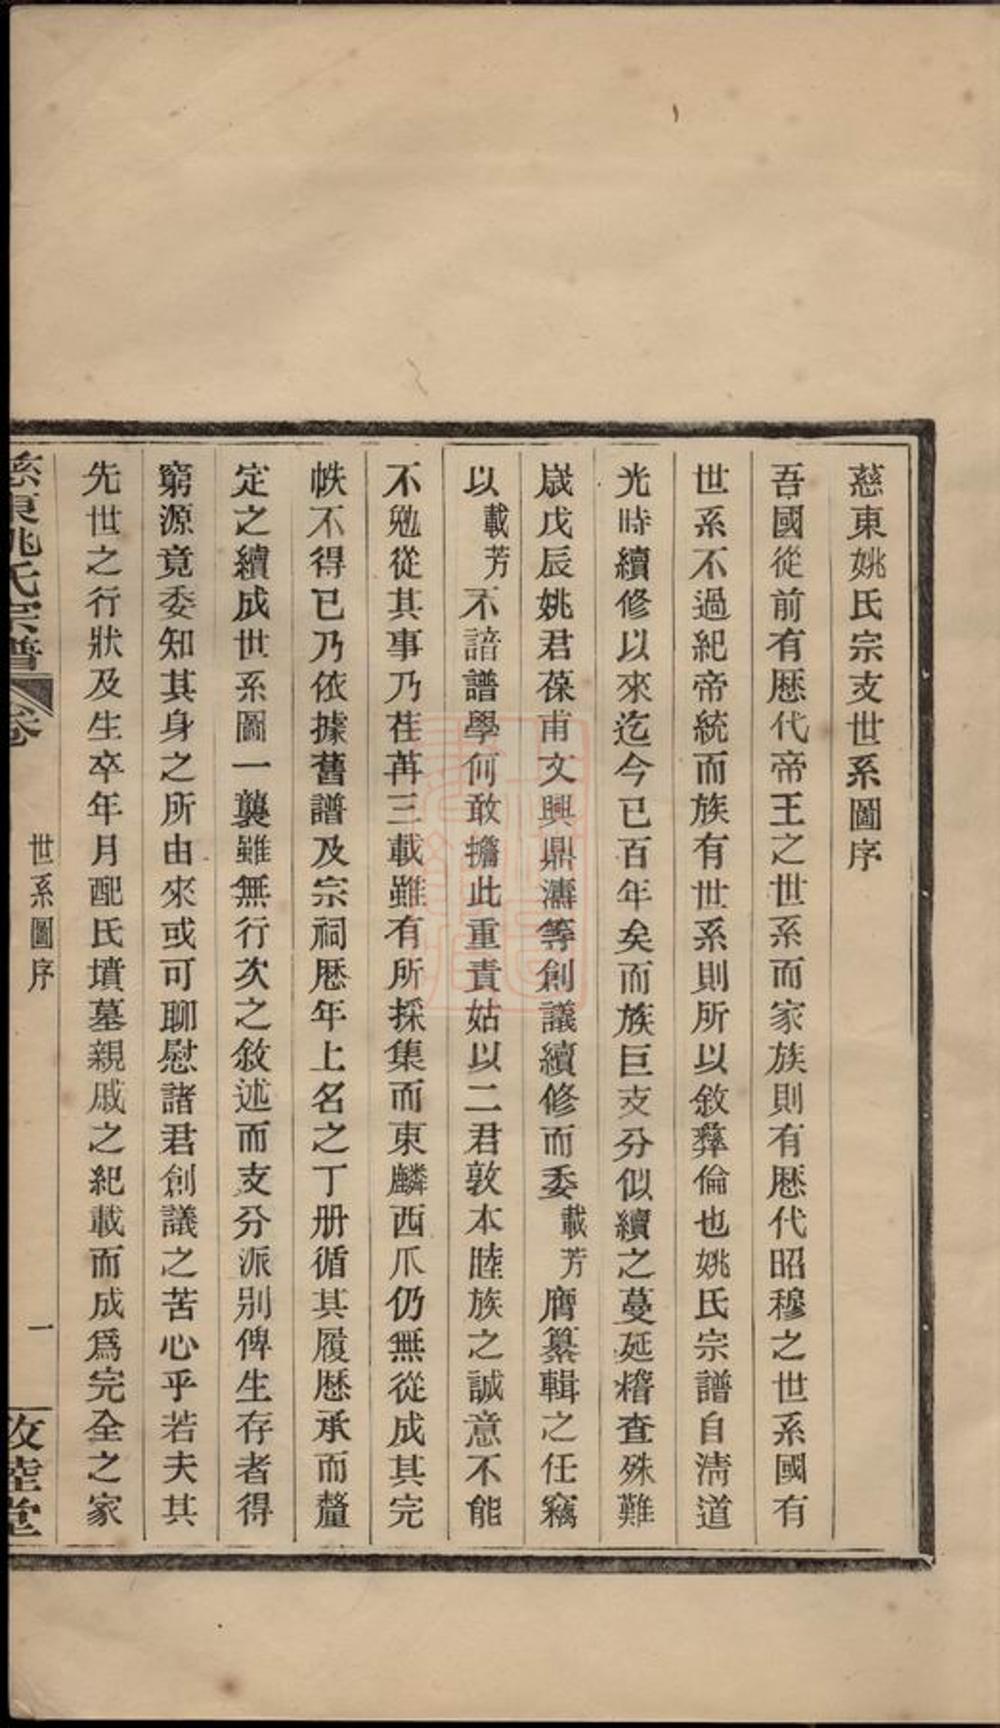 慈東姚氏宗支世系圖序
吾國從前有歷代帝王之世系而家族則有歷代昭穆之世系國有
世系不過紀帝統而族有世系則所以敘彝倫也姚氏宗譜自淸道
光時續修以來迄今已百年矣而族巨支分似續之蔓延稽查殊難
歲戊辰姚君葆甫文興鼎濤等創議續修而委載芳膺纂輯之任竊
以載芳不諳譜學何敢擔此重責姑以二君敦本睦族之誠意不能
不勉從其事乃荏苒三載雖有所採集而東麟西爪仍無從成其完
帙不得已乃依據舊譜及宗祠歷年上名之丁册循其履歷承而釐
定之續成世系圖一襲雖無行次之敘述而支分派別俾生存者得
窮源竟委知其身之所由來或可聊慰諸君創議之苦心乎若夫其
先世之行狀及生卒年月配氏墳墓親戚之紀載而成爲完全之家
慈東姚氏宗譜 卷 世系圖序 一 睦堂